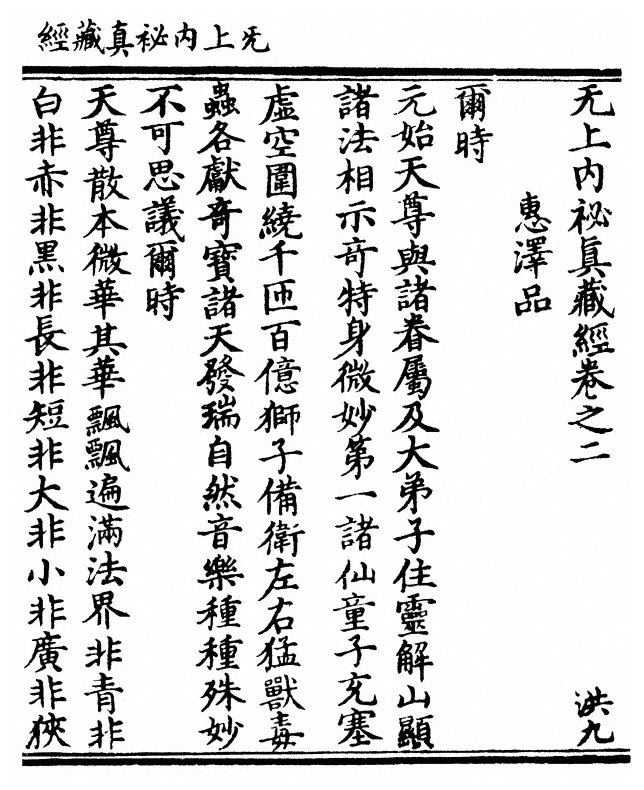 无上內祕真藏經
无上內祕眞藏經卷之二
洪九
惠澤品
爾時
元始天尊與諸眷屬及大弟子住靈解山顯
諸法相示奇特身微妙第一諸仙童子充塞
虛空圍繞千匝百億獅子備衛左右猛獸毒
蟲各獻奇寶諸天發瑞自然音樂種種殊妙
不可思議爾時
天尊散本微華其華飄飄遍滿法界非青非
白非赤非黑非長非短非大非小非廣非狹